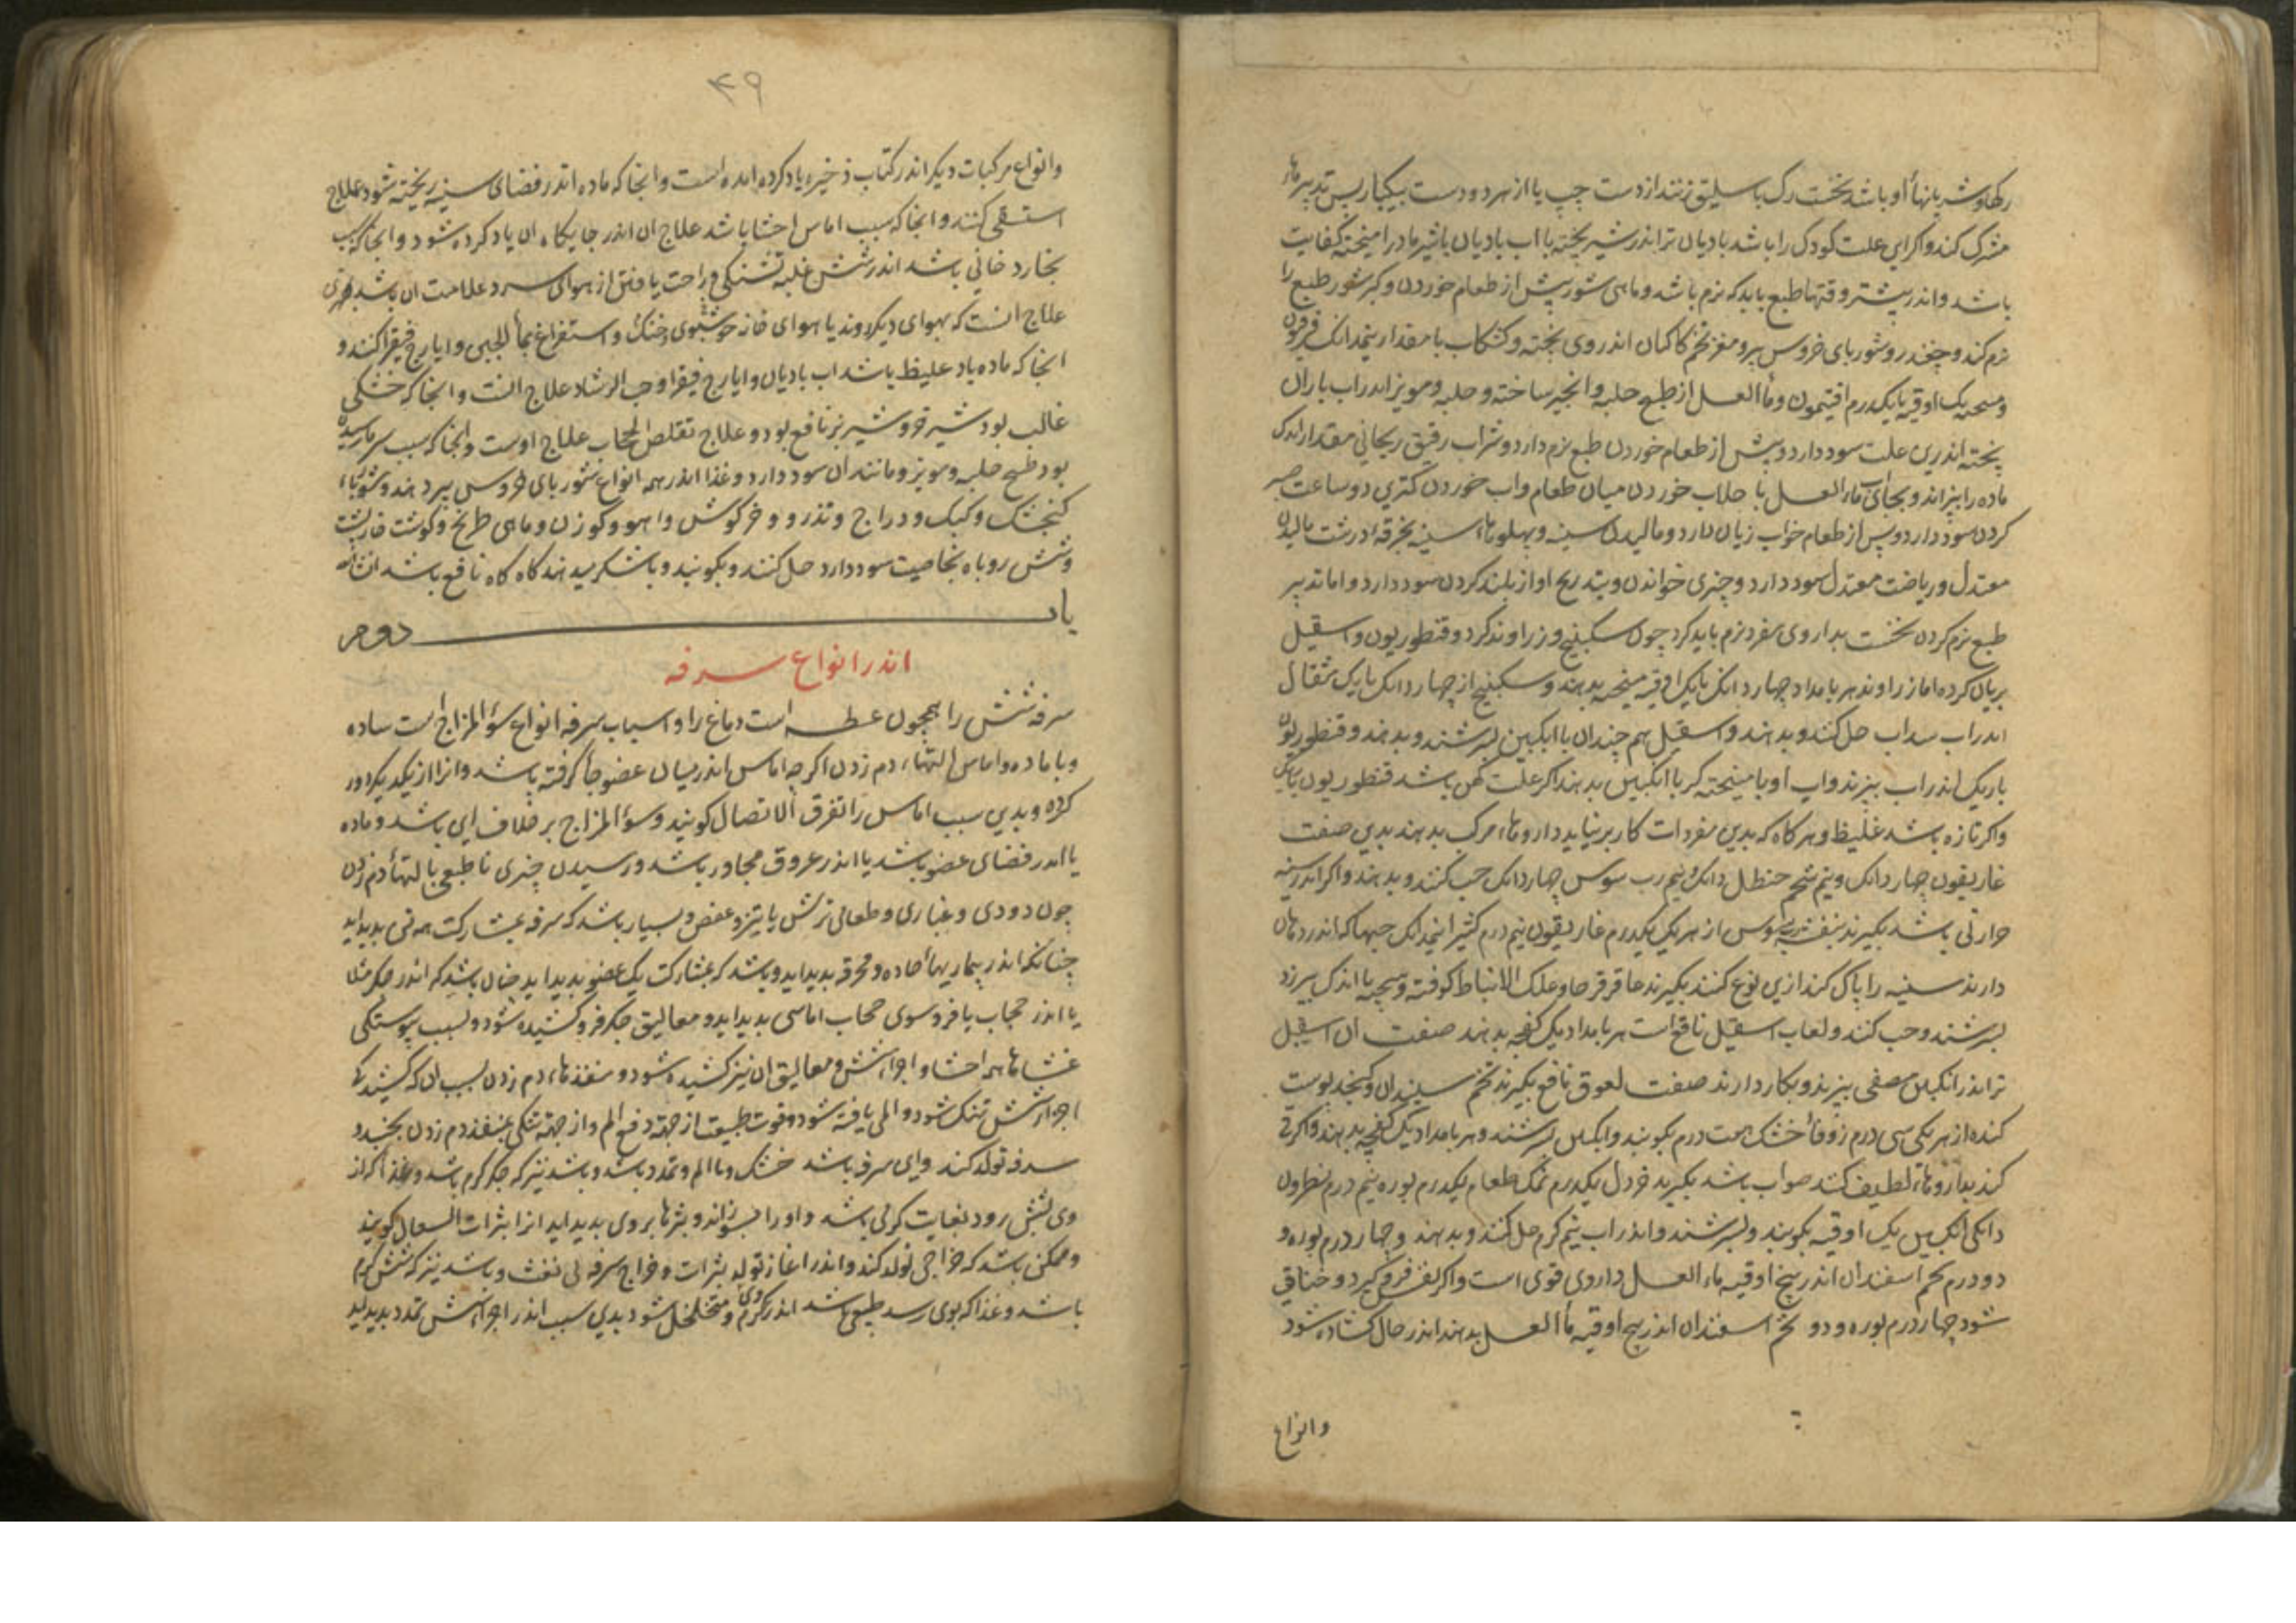 رکها و شریانها او باشد نخست رک باسلیق زنند از دست چپ یا از هر دو دست بیکبار پس تدبیرها
مشرک کند و اکر این علت کودک را باشد بادیان تر اندر شیر پخته یا اب بادیان با شیر مادر امیخته کفایت
باشد و اندر بیشتر وقتها طبع باید که نرم باشد و ماهی شور پیش از طعام خوردن و کبر شور طبع را
نرم کند و چغندر و شوربای خروس پیر و مغز تخم کاکیان اندر وی پخته و کشکاب با مقدار نیمدانک فرفیون
و یک اوقیه یا یکدرم افتیمون و ماالعسل از طبع حلبه و انجیر ساخته و حلبه و مویز اندر اب باران
پخته اندرین علت سود دارد و پیش از طعام خوردن طبع نرم دارد و شراب رقیق ریحانی مقدار اندک
ماده را بپزاند و بجای اب ماء العسل یا جلاب خوردن میان طعام و اب خوردن کمتری دو ساعت صبر
کردن سود دارد و پس از طعام خواب زیان دارد و مالیدن سینه و پهلوها سینه بخرقه درشت مالیدن
معتدل و ریاضت معتدل سود دارد و چیزی خواندن و بتدریج اواز بلند کردن سود دارد و اما تدبیر
طبع نرم کردن نخست بداروی مفرد نرم باید کرد چون سکبینج و زراوند کرد و قنطوریون و اسقیل
بریان کرده اما زراوند هر بامداد چهار دانک با یک اوقیه میبختج بدهند و سکبینج از چهار دانک تا یک مثقال
اندر اب سداب حل کنند و بدهند و اسقیل هم چندان با انکبین بسرشند و بدهند و قنطوریون
باریک اندر اب بپزند و اب او با میبختج کر با انکبین بدهند اکر علت کهن باشد قنطوریون باریک
و اکر تازه باشد غلیظ و هر کاه که بدین مفردات کار برنیاید داروها مرکب بدهند بدین صفت
غاریقون چهار دانک و نیم شحم حنظل دانک و نیم رب سوس چهار دانک حب کنند و بدهند و اکر اندر سینه
حرارتی باشد بکیرند بنفشه رب سوس از هر یک یکدرم غاریقون نیم درم کثیرا نیمدانک حبها که اندر دهان
دارند سینه را پاک کند ازین نوع کنند بکیرند عاقرقرحا و علک الانباط کوفته و بیخته با اندک بیرزد
بسرشند و حب کنند و لعاب اسقیل نافع است هر بامداد یک کفچه بدهند صفت ان اسقیل
تر اندر انکبین مصفی بپزند و بکار دارند صفت لعوق نافع بکیرند تخم سپندان و کنجد پوست
کنده از هر یکی سی درم زوفا خشک هفت درم بکوبند و با انکبین بسرشند و هر بامداد یک کفچه بدهند و اکر قی
کند بداروهاء لطیف کنند صواب باشد بکیرند خردل یکدرم نمک طعام یکدرم بوره نیم درم نطرون
دانکی انکبین یک اوقیه بکوبند و بسرشند و اندر اب نیم کرم حل کنند و بدهند و چهار درم بوره و
دو درم تخم اسفندان اندر پنج اوقیه ماء العسل داروی قوی است و اکر نفس فرو کیرد و خناقی
شود چهار درم بوره و دو تخم اسفندان اندر پنج اوقیه ماالعسل بدهند اندر حال کشاده شود
وانواع
۴۹
وانواع مرکبات دیکر اندر کتاب ذخیره یاد کرده امده است و انجا که ماده اندر فضای سینه ریخته شود علاج
استسقی کنند و انجا که سبب اماس احشا باشد علاج ان اندر جایکاه ان یاد کرده شود و انجا که سبب
بخار دخانی باشد اندر شش غلبه تشنکی و راحت یافتن از هوای سرد علامت ان باشد
علاج انست که بهوای دیکر روند یا هوای خانه خوشبوی و خنک و استفراغ بماالجبن و ایارج فیقرا کنند و
انجا که ماده باد غلیظ باشد اب بادیان و ایارج فیقرا و حب الرشاد علاج انست و انجا که خشکی
غالب بود شیر خر و شیر بز نافع بود و علاج تقلص الحجاب علاج اوست و انجا که سبب سرما رسیده
بود طبیخ حلبه و مویز و مانند ان سود دارد و غذا اندر همه انواع شوربای خروس پیر دهند و شوربای
کنجشک و کبک و دراج و تذرو و خرکوش و اهو و کوزن و ماهی طریخ و کوشت خارپشت
و شش روباه بخاصیت سود دارد حل کنند و بکوبند و با شکر میدهند کاه کاه نافع باشد ان شاالله
باب دوم
اندر انواع سرفه
سرفه شش را همچون عطسه است دماغ را و اسباب سرفه انواع سوالمزاج است ساده
و با ماده و اماس التهاء دم زدن اکرچه اماس اندر میان عضو جا کرفته باشد و انرا از یکدیکر دور
کرده و بدین سبب اماس را تفرق الاتصال کویند و سوالمزاج بر خلاف این باشد و ماده
یا اندر فضای عضو باشد یا اندر عروق مجاور باشد و رسیدن چیزی ناطبعی بالتهاء دم زدن
چون دودی و غباری و طعامی ترش یا تیز و عفص و بسیار باشد که سرفه بمشارکت همه تن پدید اید
چنانکه اندر بیماریهاء حاده و محرقه پدید اید و باشد که بمشارکت یک عضو پدید اید چنان باشد که اندر جکر مثلا
یا اندر حجاب یا فروسوی حجاب اماسی پدید اید و معالیق جکر فرو کشیده شود و بسبب پیوستکی
غشاها همه احشا و اجزاء شش و معالیق ان نیز کشیده شود و منفذها دم زدن بسبب ان که کشیدن
اجزاء شش تنک شود و الم یافته شود و قوت طبیعت از جهت دفع الم و از جهت تنکی منفذ دم زدن بجنبد و
سرفه تولد کند و این سرفه باشد خشک و با الم و تمدد باشد و باشد نیز که جکر کرم باشد و غذا که از
وی بشش رود بغایت کرمی باشد و او را بسوزاند و بثرها بر وی پدید اید انرا بثرات السعال کویند
و ممکن باشد که خراجی تولد کند و اندر اغاز تولد بثرات و خراج سرفه بی نفث و باشد نیز که شش کرم
باشد و غذا که بوی رسد طبیعی باشد اندر وی کرم و متخلخل شود بدین سبب اندر اجزاء شش تمدد پدید اید